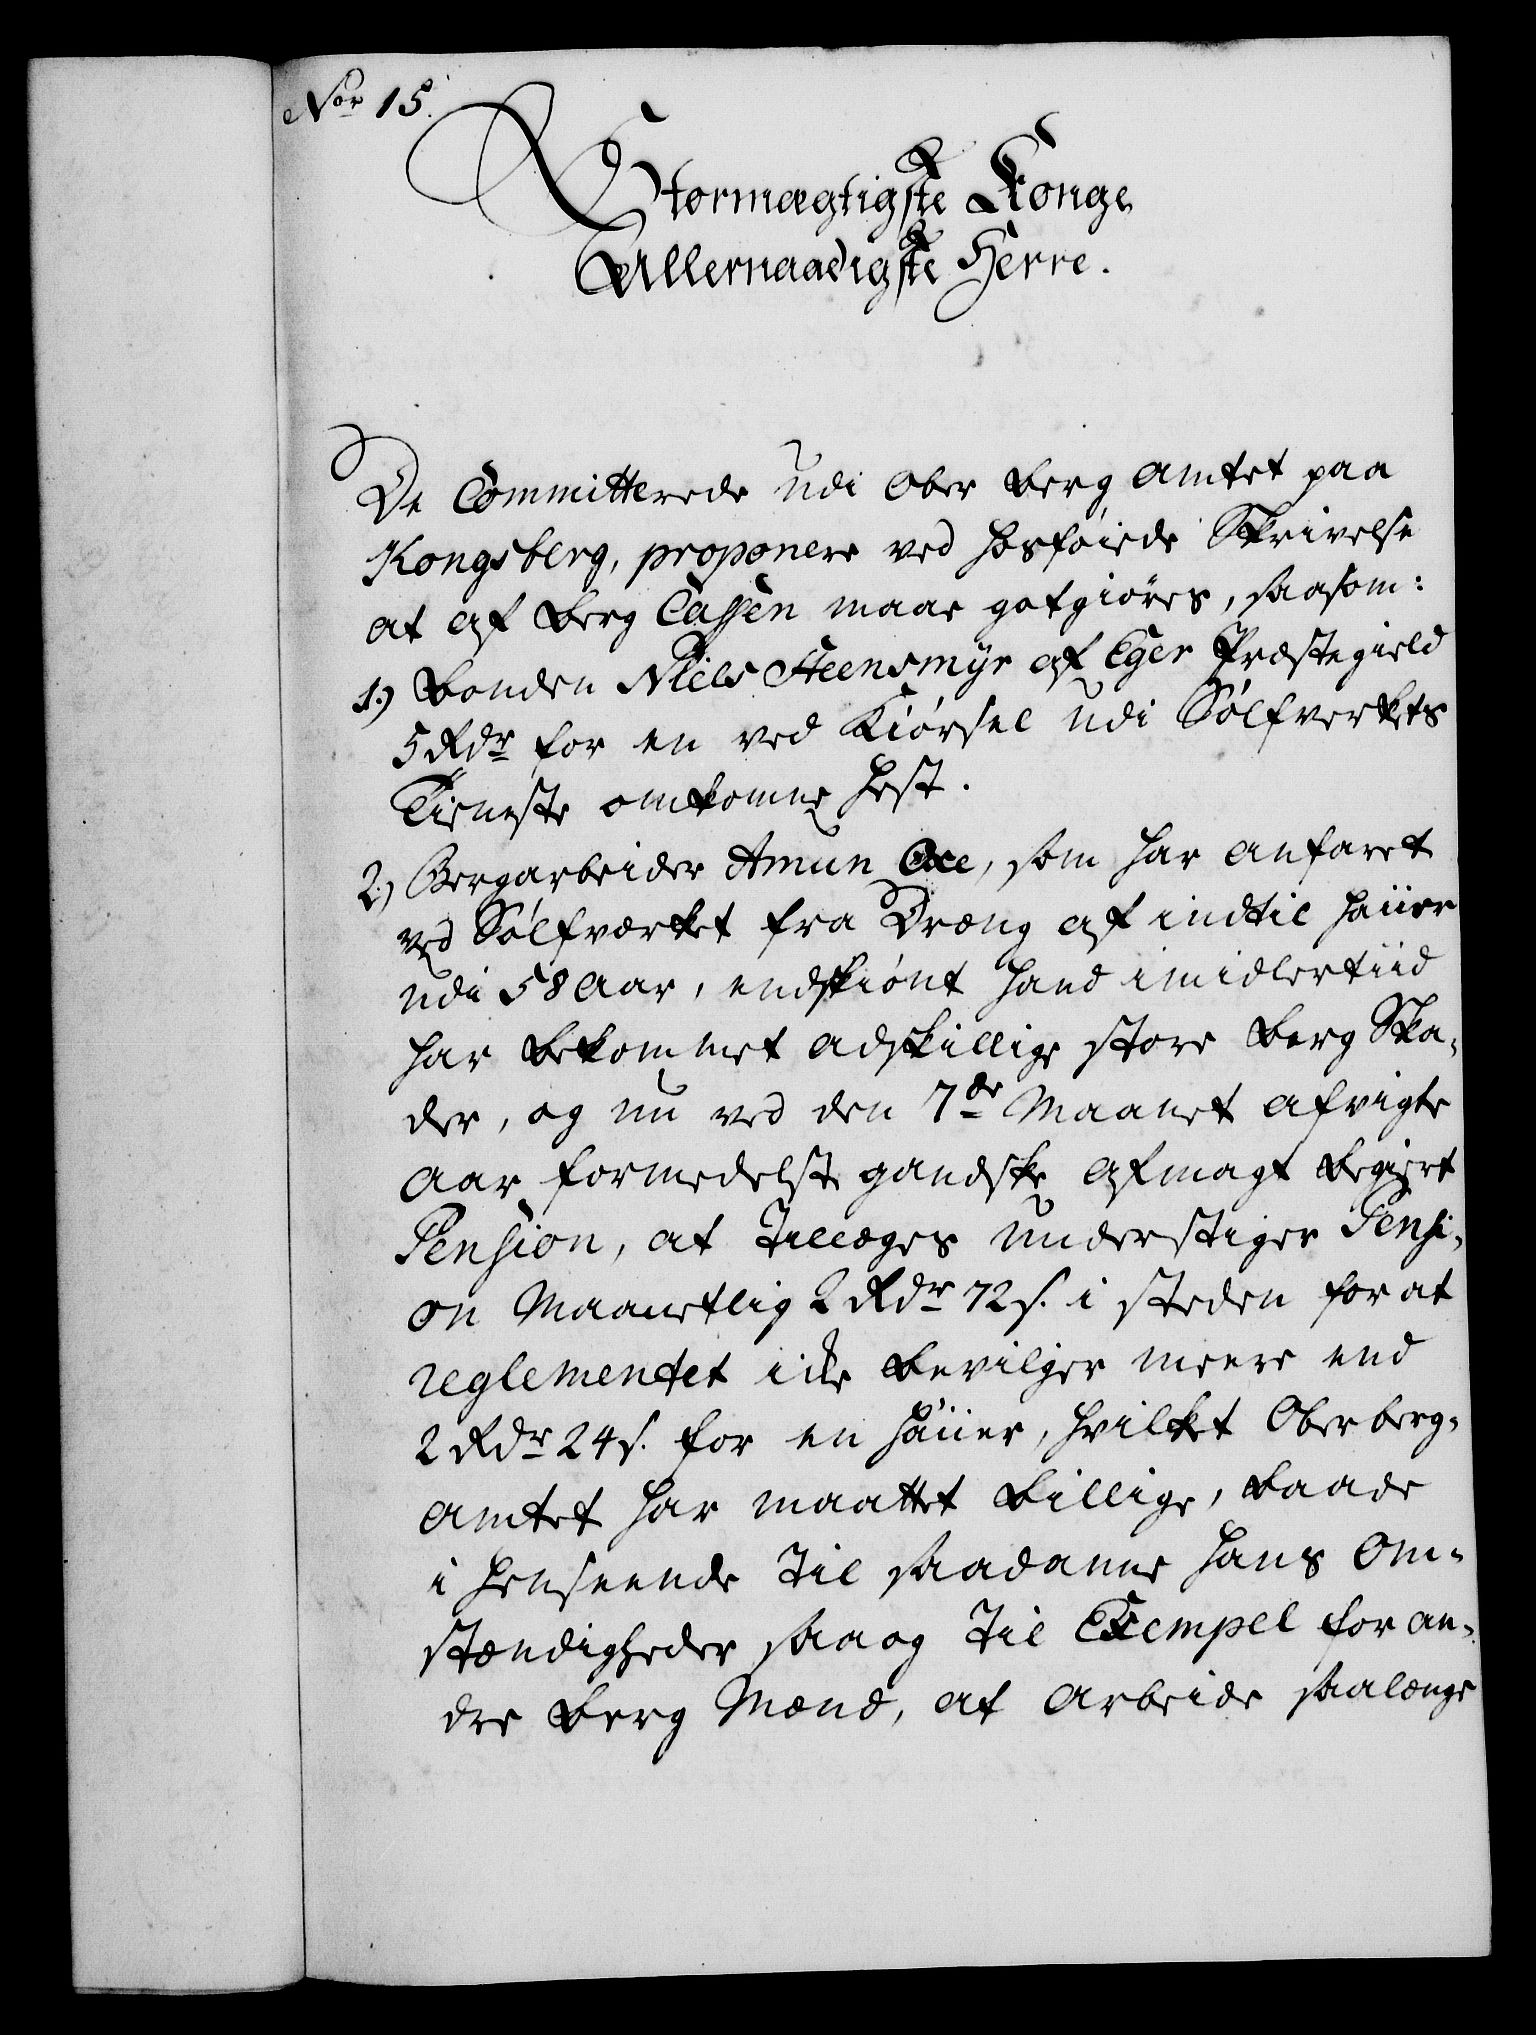 Nor 15.
Stormægtigste Konge
Allernaadigste Herre.
De Committerede udi Ober Berg Amtet paa
Kongsberg, proponere ved hosføiede Skrivelse
at af Berg Cassen maae gotgiøres, saasom:
1.) Bonden Niels Steensmyr af Eger Præstegield
5 Rdr for en ved Kiørsel udi Sølfverkets
Tieneste omkomne Hest.
2.) Bergarbeider Amun Oxe, som har anfaret
ved Sølfværket fra Dræng af indtil Hauer
udi 58 Aar, endskiønt hand imidlertiid
har bekommet adskillige store Berg Ska-
der, og nu ved den 7de Maanet afvigte
Aar formedelst gandske Afmagt begiert
Pension, at Tillæges understiger Pensi-
on Maanetlig 2 Rdr 72 s. i steden for at
reglementet icke bevilger meere end
2 Rdr 24 s. for en Hauer, hvilket Oberberg-
amtet har maattet billige, baade
i Henseende til saadanne hans Om-
stændigheder saa og til Exempel for an-
dre Berg Mænd, at arbeide saalænge